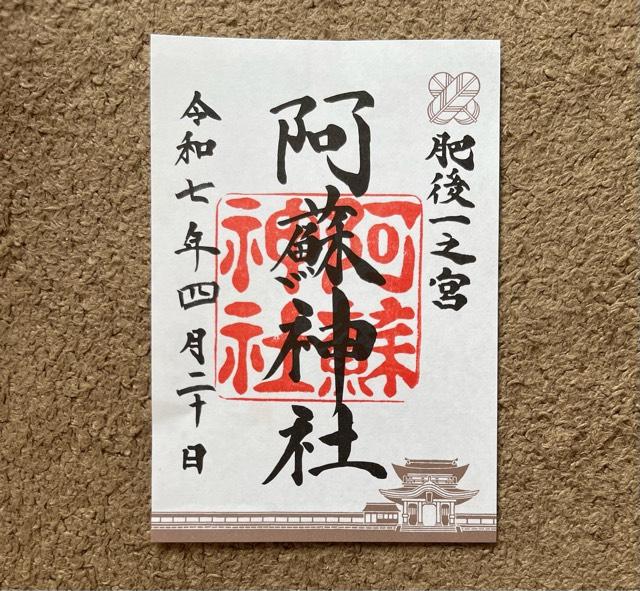 肥後一之宮
阿蘇神社
阿蘇
神社
令和七年四月二十日